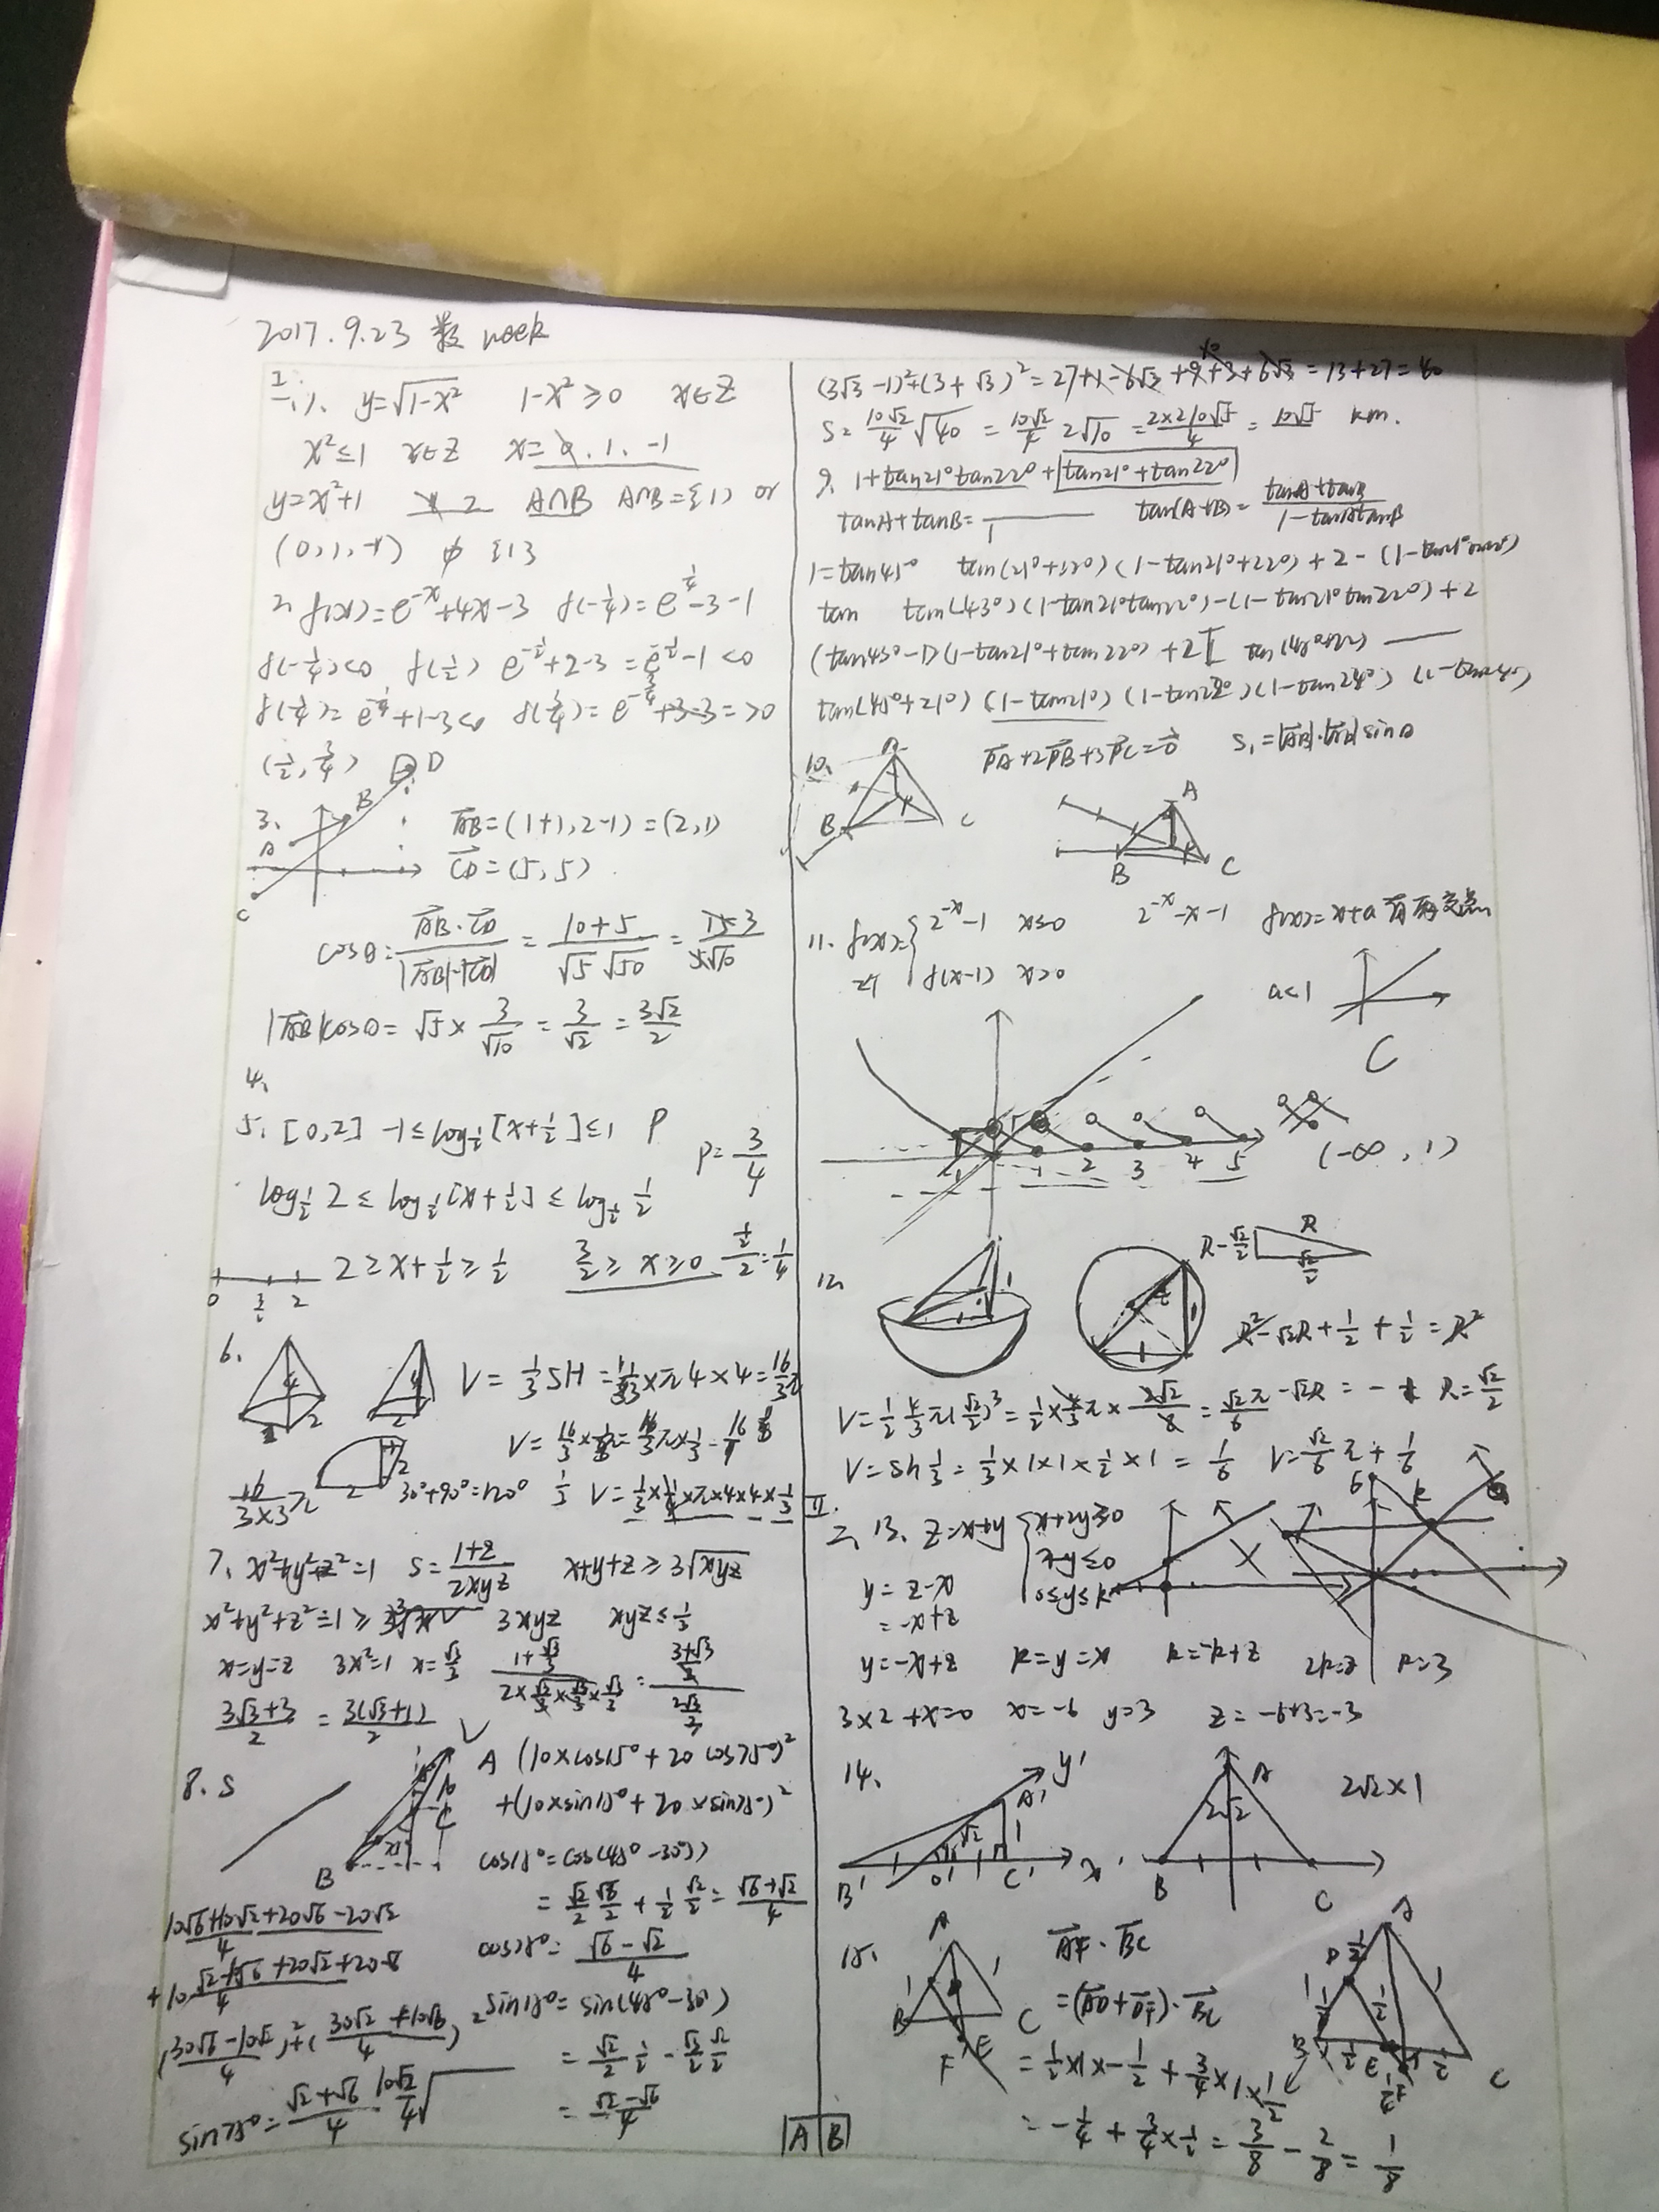 2017.9.23 数 week
一、1、 y=√(1-x²) 1-x²≥0 x∈Z
x²≤1 x∈Z x=0.1.-1
y=x²+1 2 A∩B A∩B={1} or
(0,1,-1) ∅ {1}
2、f(x)=e^(-x)+4x-3 f(-1/4)=e^(1/4)-3-1
f(-1/4)<0 f(1/2) e^(-1/2)+2-3=e^(-1/2)-1<0
f(1/4)=e^(-1/4)+1-3<0 f(3/4)=e^(-3/4)+3-3=>0
(1/2,3/4) D
3、 A B C AB=(1+1,2-1)=(2,1)
CD=(5,5)
cosθ=AB·CD/|AB|·|CD|=(10+5)/(√5√50)=15 3/5√10
|AB|cosθ=√5×3/√10=3/√2=3√2/2
4、
5、[0,2] -1≤log½[x+1/2]≤1 P P=3/4
log½ 2≤log½[x+1/2]≤log½ 1/2
0 3/2 2 2≥x+1/2≥1/2 3/2≥x≥0 (1/2)/2=1/4
6、 V=1/3SH=1/3×π4×4=16/3π
30°+90°=120° 1/3 V=1/3×1/4×π×4×4×1/3
16/(3×3)π
7、x²+y²+z²=1 S=(1+z)/2xyz x+y+z≥3√xyz
x²+y²+z²=1≥ 3xyz xyz≤1/3
x=y=z 3x²=1 x=√3/3
(3√3+3)/2=3(√3+1)/2
8、S A (10×cos15°+20cos75°)²
+(10×sin15°+20×sin75°)²
B cos15°=cos(45°-30°)
=√2/2 √3/2+1/2 √2/2=(√6+√2)/4
cos75°=(√6-√2)/4
sin15°=sin(45°-30°)
=√2/2 1/2-√3/2 √2/2
=(√2-√6)/4
sin75°=(√2+√6)/4 10√2/4√
A B
(3√3-1)²+(3+√3)²=27+1-6√3+9+3+6√3=13+27=40
S=10√2/4 √40=10√2/4 2√10=2×2 10√5/4=10√5 km.
9、1+tan21°tan22°+tan21°+tan22°
tanA+tanB= tan(A+B)=(tanA+tanB)/(1-tanAtanB)
1=tan45° tan(21°+22°)(1-tan21°+22°)+2-(1-tan21°tan22°)
tan tan(43°)(1-tan21°tan22°)-(1-tan21°tan22°)+2
(tan43°-1)(1-tan21°+tan22°)+2
tan(45°+21°)(1-tan21°)(1-tan22°)(1-tan24°)
10、 B C PA+2PB+3PC=0 S₁=|AB|·|AB|sinθ
A B C
11、f(x)={2^(-x)-1 x≤0 2^(-x)-x-1 f(x)=x+a 有两交点
f(x-1) x>0 a<1
C
-1 1 2 3 4 5 (-∞,1)
12、 R-√2/2 R √2/2
R²-√2R+1/2+1/2=R²
V=1/2 4/3π(√2/2)³=1/2×4/3π×2√2/8=√2π/6 -√2R=-1 R=√2/2
V=Sh1/3=1/3×1×1×1/2×1=1/6 V=√2/6π+1/6
Ⅱ
二、13、Z=x+y {x+2y≥0
x-y≤0
0≤y≤k
y=z-x
=-x+z
y=-x+z k=y=x k=-k+z 2k=z k=3
3×2+x=0 x=-6 y=3 z=-6+3=-3
14、 y' A' √2 1 B' O' C' x' A 2√2 B C 2√2×1
15、 A B C F E AF·BC
=(AD+DF)·BC
=1/2×1×-1/2+3/4×1×1/2
=-1/4+3/4×1/2=3/8-2/8=1/8